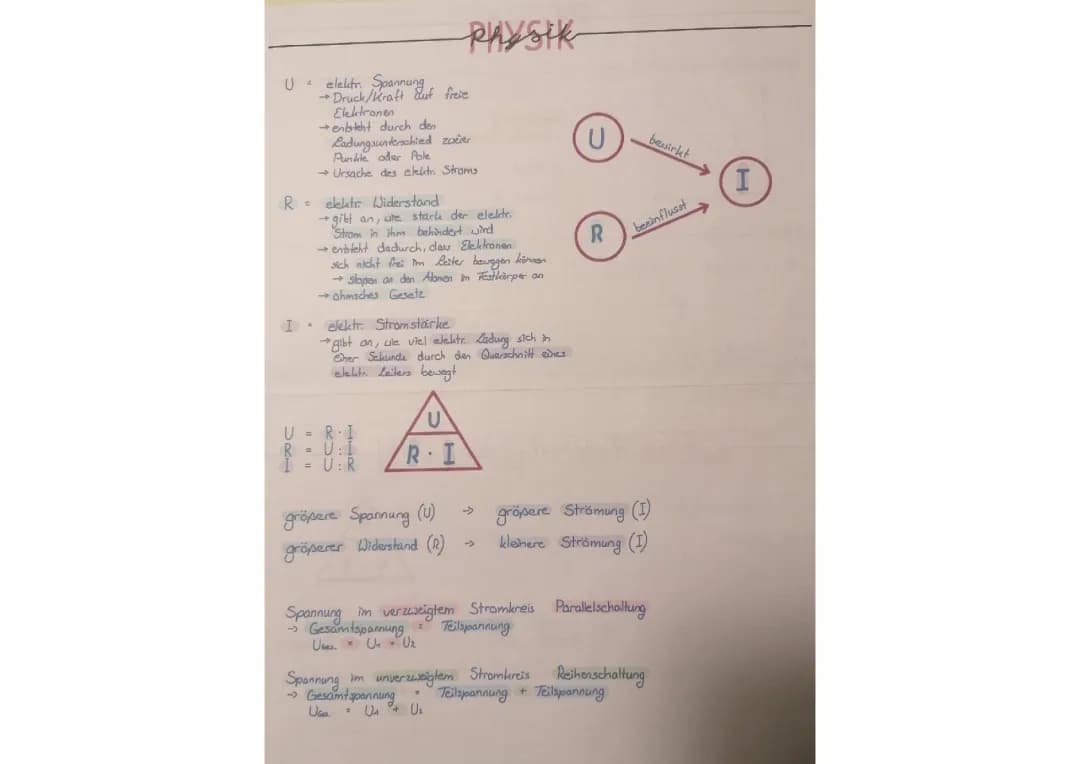 PHYSIK
Physik
U = elektr. Spannung
→ Druck/Kraft auf freie
Elektronen
→ entsteht durch den
Ladungsunterschied zweier
Punkte oder Pole
→ Ursache des elektr. Stroms
R = elektr. Widerstand
→ gibt an, wie stark der elektr.
Strom in ihm behindert wird
→ entsteht dadurch, dass Elektronen
sich nicht frei im Leiter bewegen können
→ stoßen an den Atomen im Festkörper an
→ ohmsches Gesetz
I = elektr. Stromstärke
→ gibt an, wie viel elektr. Ladung sich in
einer Sekunde durch den Querschnitt eines
elektr. Leiters bewegt
U
bewirkt
I
R
beeinflusst
U = R · I
R = U : I
I = U : R
U
R · I
größere Spannung (U) → größere Strömung (I)
größerer Widerstand (R) → kleinere Strömung (I)
Spannung im verzweigtem Stromkreis Parallelschaltung
→ Gesamtspannung = Teilspannung
UGes. = U1 = U2
Spannung im unverzweigtem Stromkreis Reihenschaltung
→ Gesamtspannung = Teilspannung + Teilspannung
UGes = U1 + U2